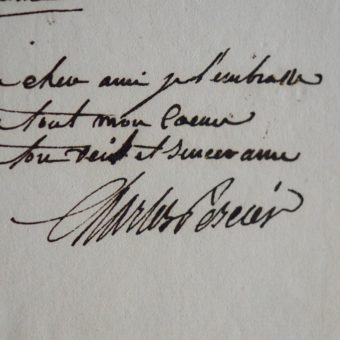 cher ami je t'embrasse
tout mon Coeur
ton vieil et sincer ami
Charles Percier